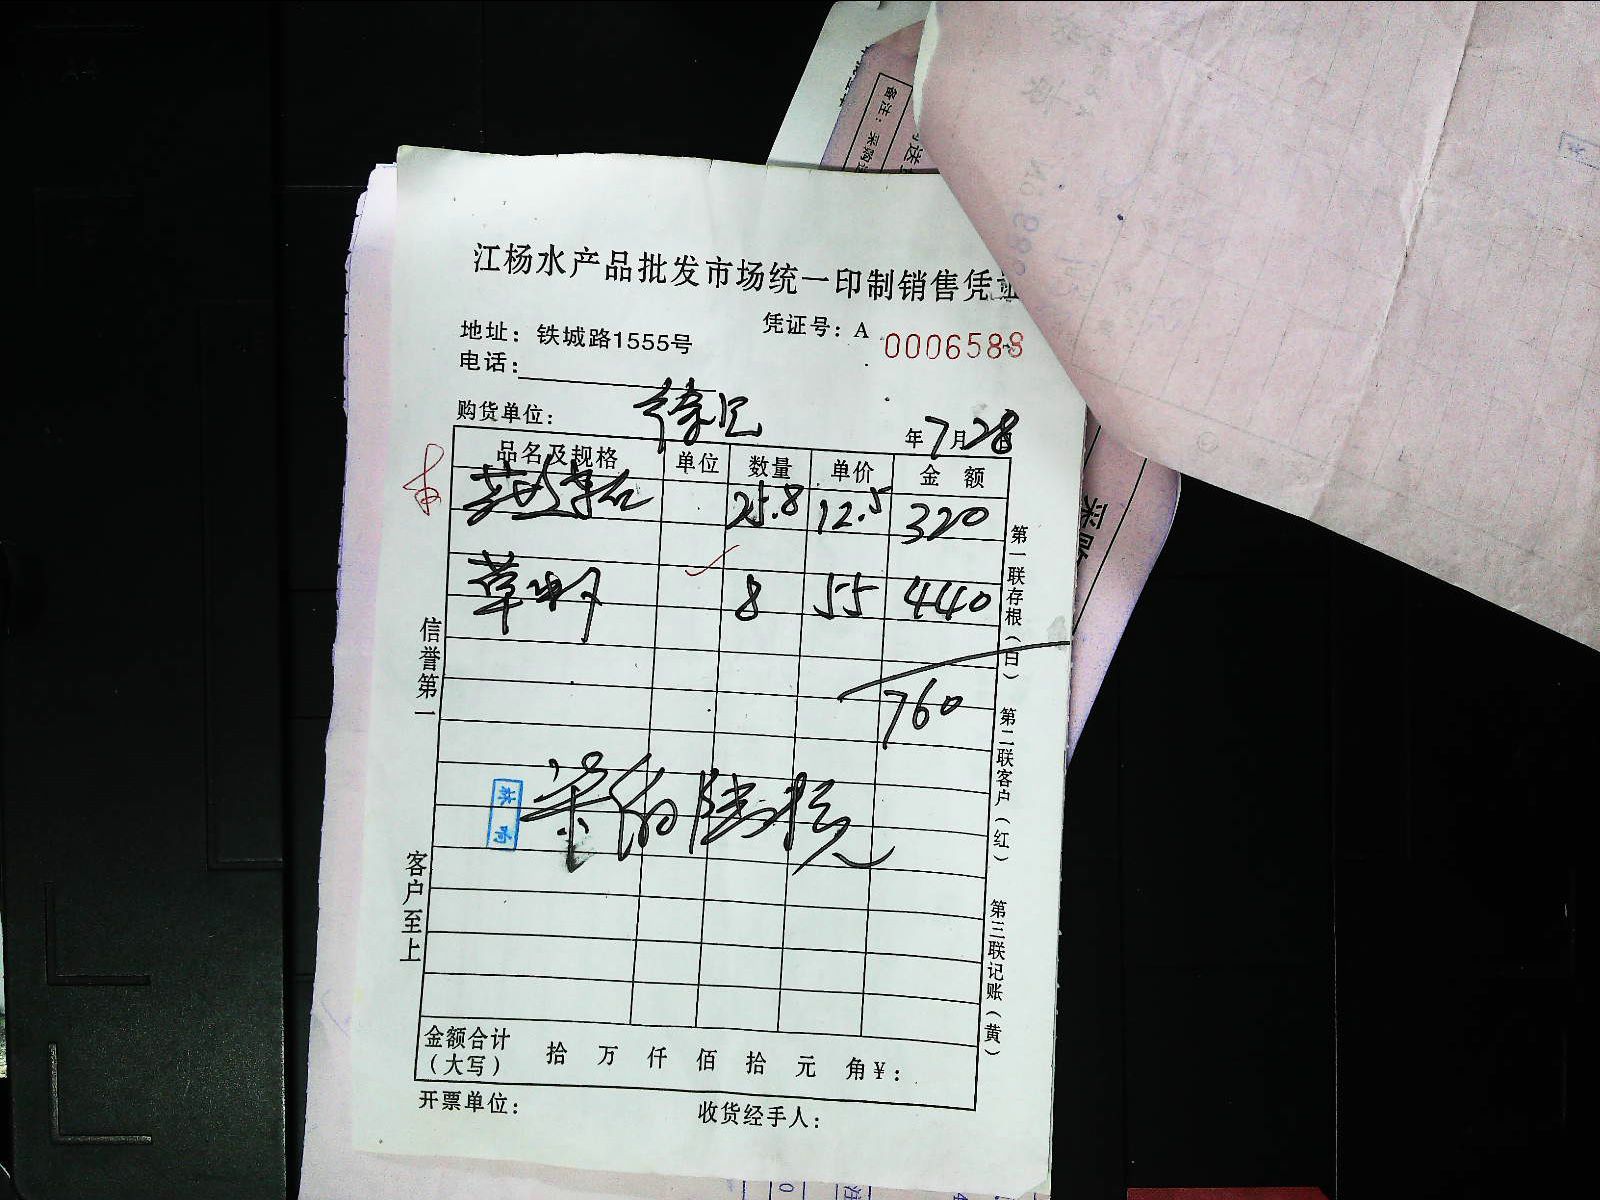 江杨水产品批发市场统一印制销售凭证
凭证号：A 0006588
地址：铁城路1555号
电话：
购货单位：徐记
年7月28日
品名及规格 单位 数量 单价 金额
25.8 12.5 320
草虾 8 55 440
760
柒佰陆拾元
信誉第一
客户至上
第一联存根（白）
第二联客户（红）
第三联记账（黄）
金额合计（大写） 拾 万 仟 佰 拾 元 角 ¥：
开票单位：
收货经手人：
备注：采购